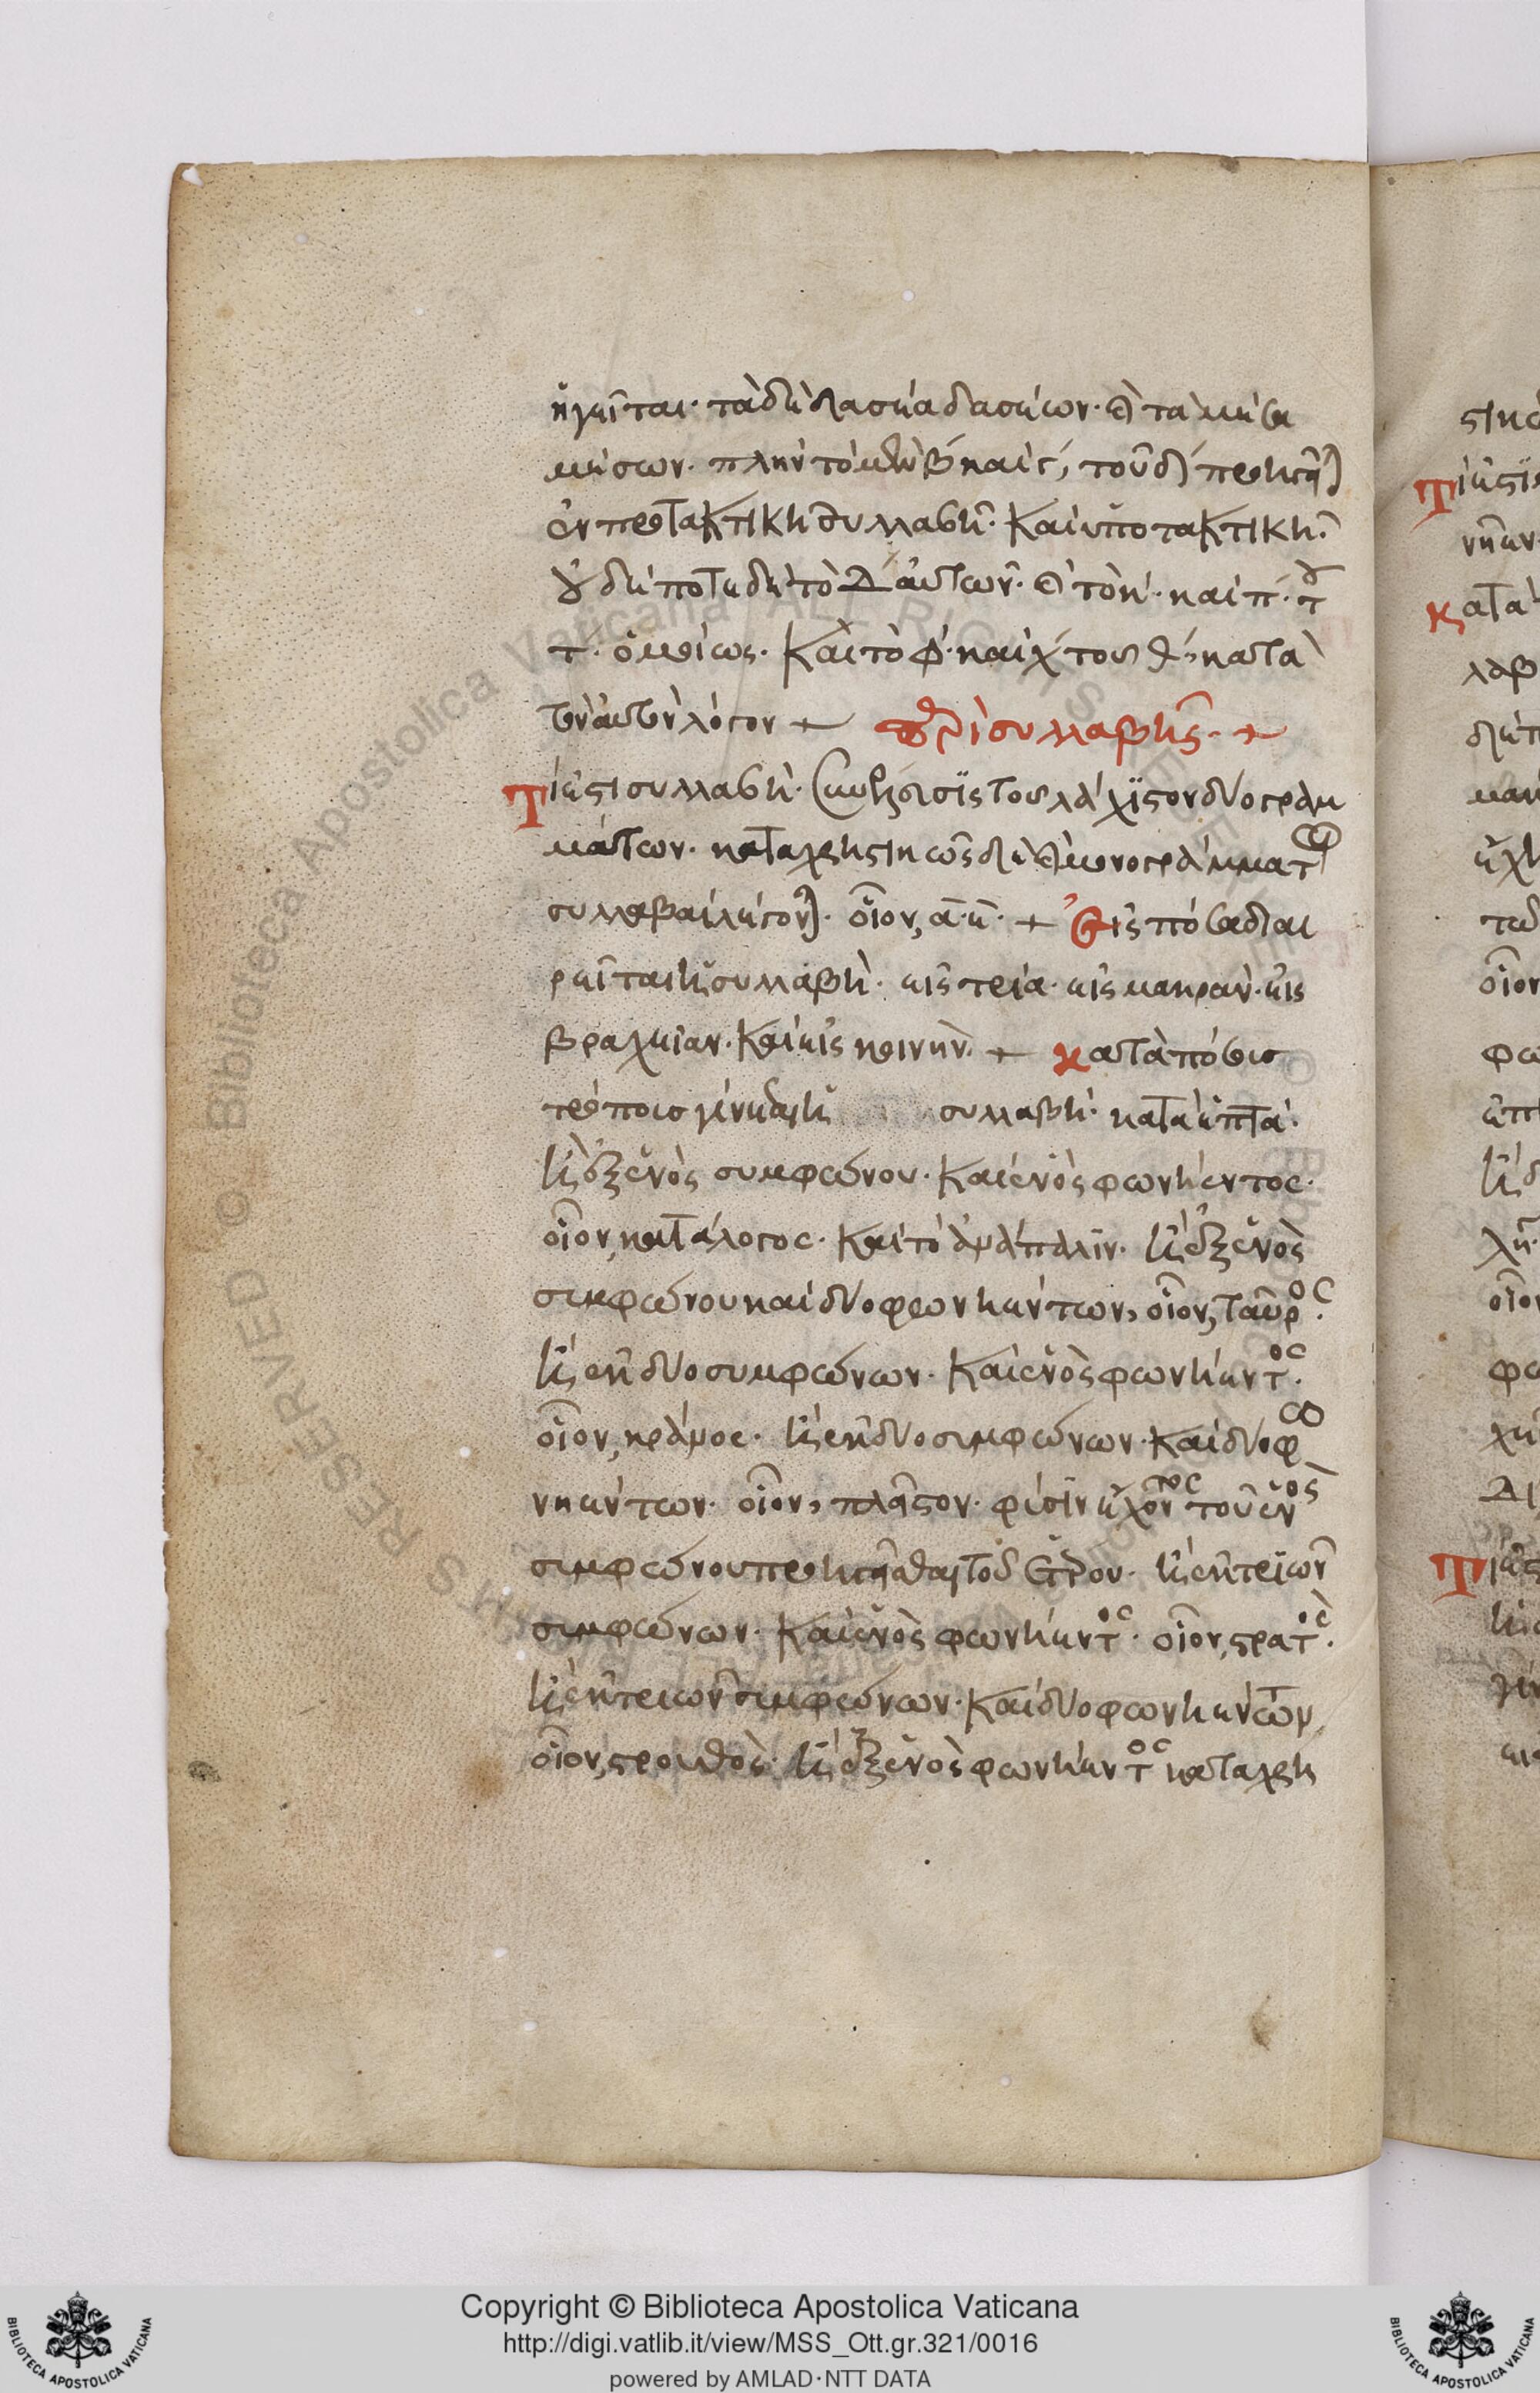 ἡγεῖται· τὰ δὲ δασέα δασέων· καὶ τὰ μέσα
μέσων· πλὴν τὸ μὲν β καὶ γ, τοῦ δ προηγεῖται
ἐν προτακτικῆ συλλαβῆ· καὶ ὑποτακτικῆ·
οὐδέποτε δὲ τὸ δ αὐτῶν· καὶ τὸ κ· καὶ π· τοῦ
τ· ὁμοίως· καὶ τὸ φ· καὶ χ τοῦ θ, κατὰ
τὸν αὐτὸν λόγον +
περὶ συλλαβῆς· +
Τί ἐστι συλλαβή· σύλληψις τοὐλάχιστον δύο γραμ
μάτων· καταχρηστικῶς δὲ καὶ μονογράμματοι
συλλαβαὶ λέγονται· οἷον, α· η· + Εἰς πόσα διαι
ρεῖται ἡ συλλαβή· εἰς τρία· εἰς μακράν· εἰς
βραχεῖαν· καὶ εἰς κοινήν· + κατὰ πόσους
τρόπους γίνεται ἡ συλλαβή· κατὰ ἑπτά·
ἢ ἐξ ἑνὸς συμφώνου· καὶ ἑνὸς φωνήεντος·
οἷον, κατάλογος· καὶ τὸ ἀνάπαλιν· ἢ ἐξ ἑνὸς
συμφώνου καὶ δύο φωνηέντων, οἷον, ταῦρος·
ἢ ἐκ δύο συμφώνων· καὶ ἑνὸς φωνήεντος·
οἷον, κράνος· ἢ ἐκ δύο συμφώνων· καὶ δύο φω
νηέντων· οἷον, πλεῖστον· φύσιν ἔχοντος τοῦ ἑνὸς
συμφώνου προηγεῖσθαι τοῦ ἑτέρου· ἢ ἐκ τριῶν
συμφώνων· καὶ ἑνὸς φωνήεντος· οἷον, στρατός·
ἢ ἐκ τριῶν συμφώνων· καὶ δύο φωνηέντων,
οἷον, στρουθός· ἢ ἐξ ἑνὸς φωνήεντος καταχρη
Copyright © Biblioteca Apostolica Vaticana
http://digi.vatlib.it/view/MSS_Ott.gr.321/0016
powered by AMLAD·NTT DATA